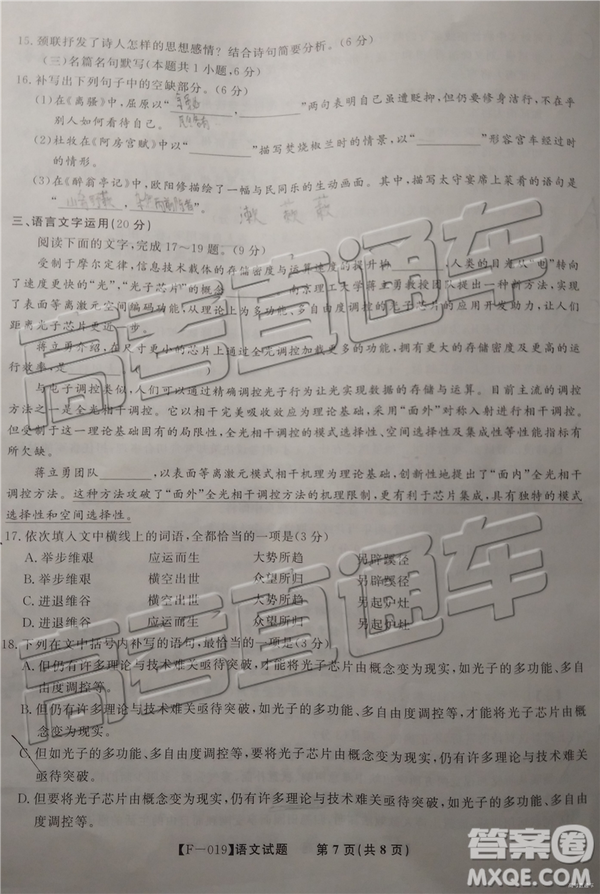 15.颔联抒发了诗人怎样的思想感情？结合诗句简要分析。(6分)
(三)名篇名句默写(本题共1小题,6分)
16.补写出下列句子中的空缺部分。(6分)
(1)在《离骚》中,屈原以“ , ”两句表明自己虽遭贬抑,但仍要修身洁行,不在乎
别人如何看待自己。
(2)杜牧在《阿房宫赋》中以“ ”描写焚烧椒兰时的情景,以“ ”形容宫车经过时
的情形。
(3)在《醉翁亭记》中,欧阳修描绘了一幅与民同乐的生动画面。其中,描写太守宴席上菜肴的语句是
“ , ”。
三、语言文字运用(20分)
阅读下面的文字,完成17~19题。(9分)
受制于摩尔定律,信息技术载体的存储密度与运算速度的提升 ,人类的目光从“电”转向
了速度更快的“光”,“光子芯片”的概念 南京理工大学蒋立勇教授团队提出一种新方法,实现
了表面等离激元空间编码功能,从理论上为多功能、多自由度调控的光子芯片的应用开发助力,让人们
距离光子芯片更近一步。
蒋立勇介绍,在尺寸更小的芯片上通过全光调控加载更多的功能,拥有更大的存储密度及更高的运
行效率,是 。( )
与电子调控类似,人们可以通过精确调控光子行为让光实现数据的存储与运算。目前主流的调控
方法之一是全光相干调控。它以相干完美吸收效应为理论基础,采用“面外”对称入射进行相干调控。
但受制于这一理论基础固有的局限性,全光相干调控的模式选择性、空间选择性及集成性等性能指标有
所欠缺。
蒋立勇团队 ,以表面等离激元模式相干机理为理论基础,创新性地提出了“面内”全光相干
调控方法。这种方法攻破了“面外”全光相干调控方法的机理限制,更有利于芯片集成,具有独特的模式
选择性和空间选择性。
17.依次填入文中横线上的词语,全都恰当的一项是(3分)
A.举步维艰 应运而生 大势所趋 另辟蹊径
B.举步维艰 横空出世 众望所归 另辟蹊径
C.进退维谷 横空出世 大势所趋 另起炉灶
D.进退维谷 应运而生 众望所归 另起炉灶
18.下列在文中括号内补写的语句,最恰当的一项是(3分)
A.但仍有许多理论与技术难关亟待突破,才能将光子芯片由概念变为现实,如光子的多功能、多自
由度调控等。
B.但仍有许多理论与技术难关亟待突破,如光子的多功能、多自由度调控等,才能将光子芯片由概
念变为现实。
C.但如光子的多功能、多自由度调控等,要将光子芯片由概念变为现实,仍有许多理论与技术难关
亟待突破。
D.但要将光子芯片由概念变为现实,仍有许多理论与技术难关亟待突破,如光子的多功能、多自由
度调控等。
【F-019】语文试题 第7页(共8页)
高考直通车
高考直通车
答案圈
MXQE.COM